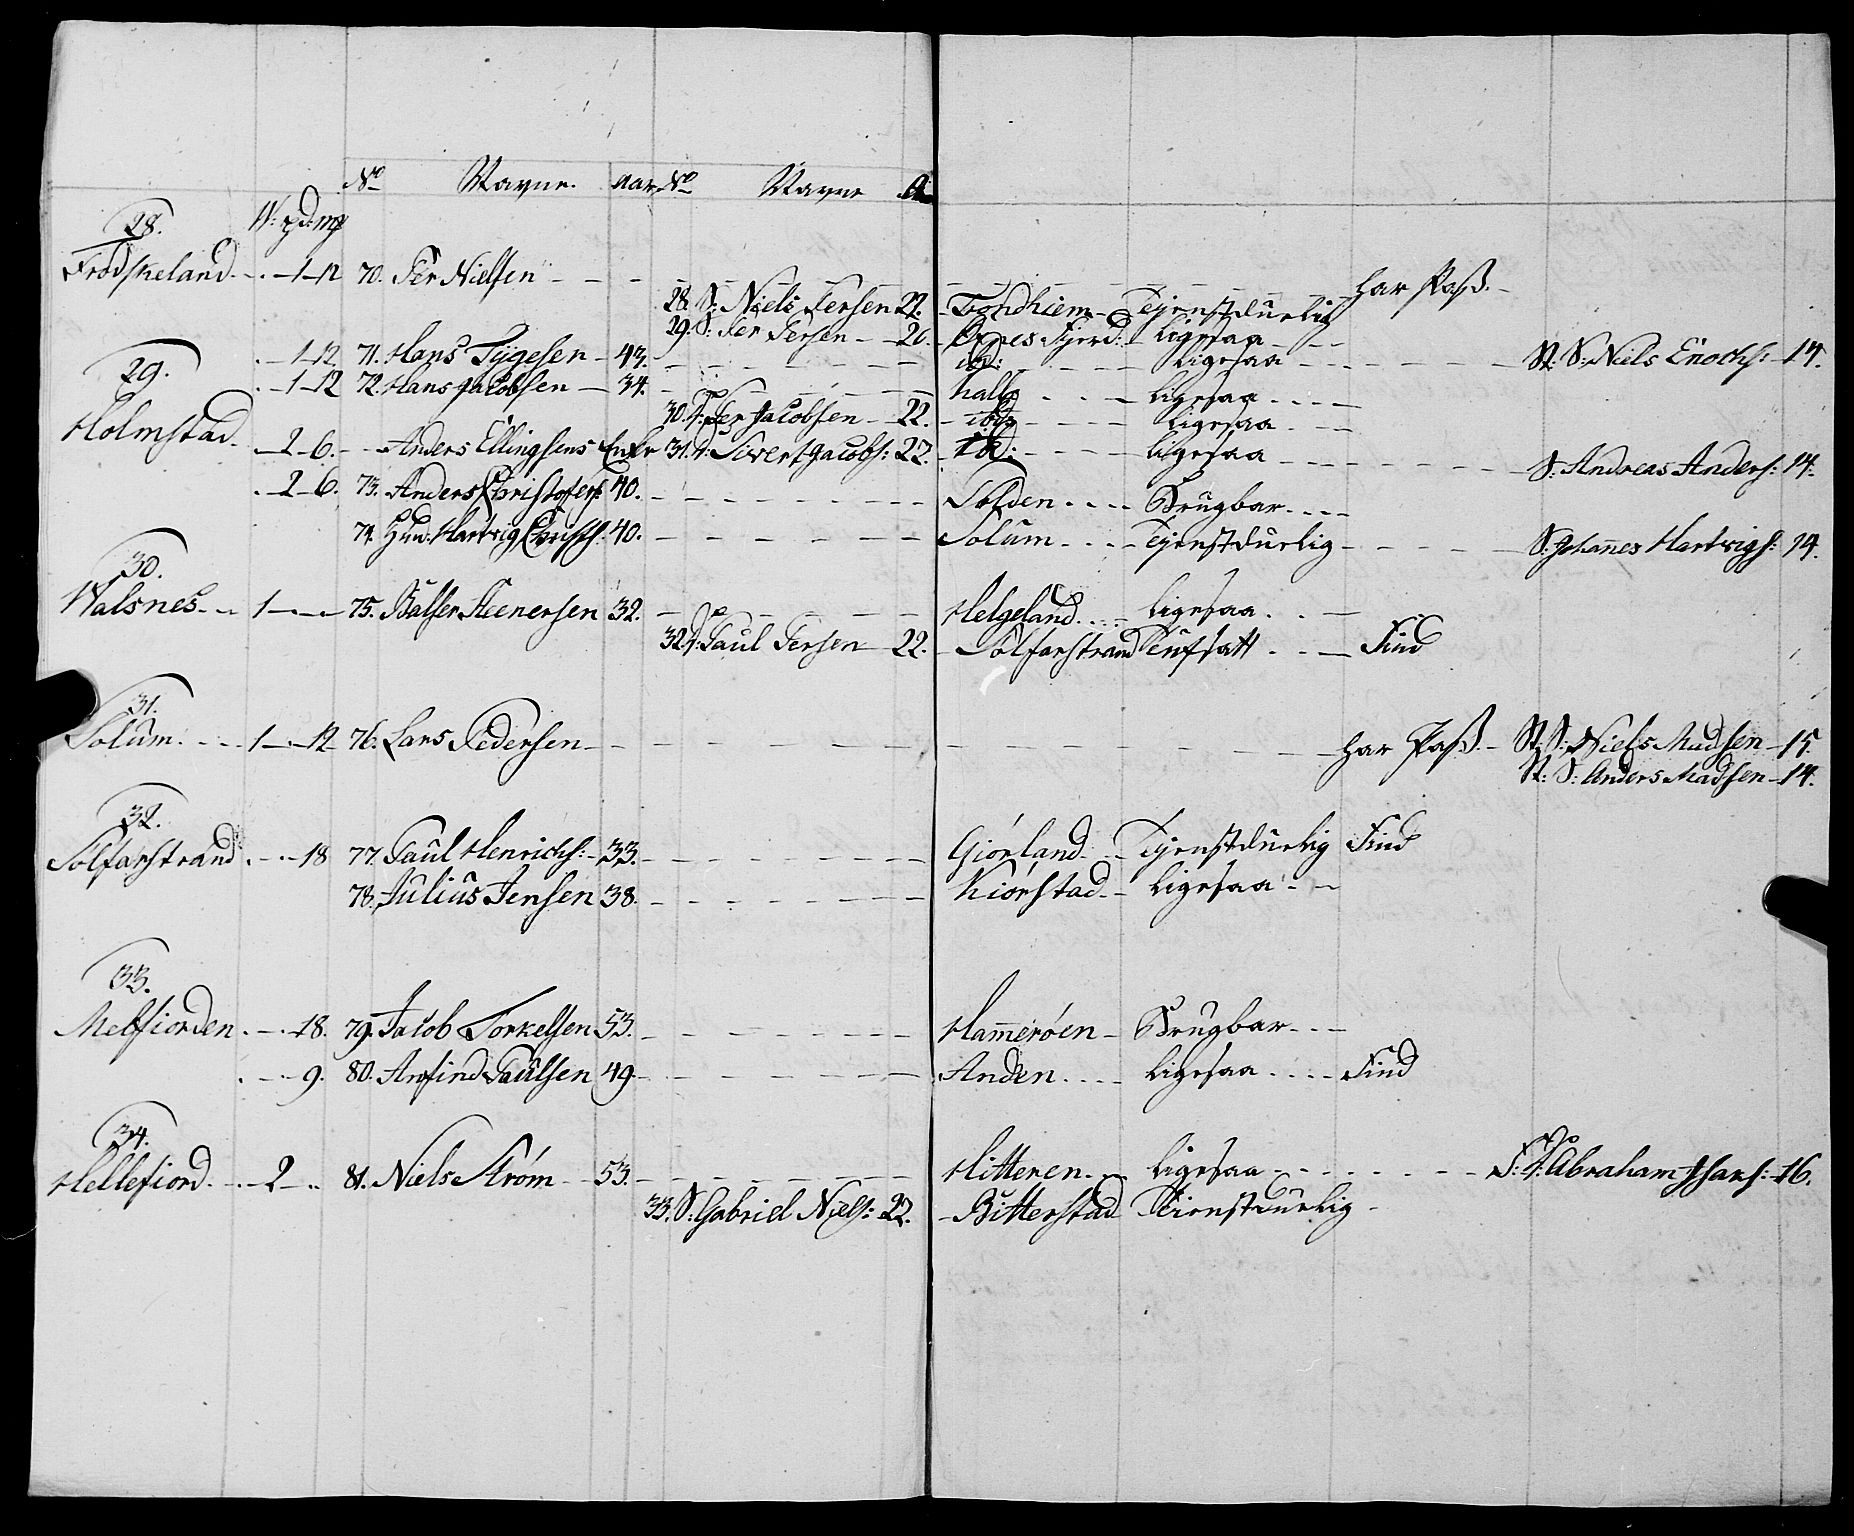 No Navne. Aar No Navne A
28. W: pd: mk
Frodskeland. - . - 1 - 12 70. Per Nielsen - - - - - - - - - har Pass. -
28. S: Niels Persen 22. Trondhiem - Tjenstduelig
29. S: Per Persen - 20. Øxnes Fjerd: ligesaa - - -
29. . - 1 - 12 71. Hans Tygesen - 43. - - - - - ibd: - - - - ligesaa - - - - - - St. S: Niels Enochs: - 14.
. - 1 - 12 72. Hans Jacobsen - 34. - - - - - - - - ligesaa - - - -
Holmstad. 30. S: Per Jacobsen - 22. - ibd: - - - - ligesaa - - -
. - 2 - 6. - - Anders Ellingsens Enke 31. S: Sivert Jacobs: 22. - ibd: - - - - ligesaa - - - - - - - S: Andreas Anders: 14.
. - 2 - 6. 73. Anders Christofers: 40. - - - - - - - - Solden - - - - Brugbar - - - -
74. Huusm: Hartvig Christ: 40. - - - - - - - Solum - - - - Tjenstduelig - - - - - S: Johannes Hartvigs: 14.
30.
Walsnes - - 1 - - - 75. Balser Steenersen 32. - - - - - - Helgeland - - - ligesaa - - -
32. S: Paul Persen - 22. - Solfarstrand Tienstdl - - - Find
31.
Solum. - - - 1 - - 12 76. Lars Pedersen - - - - - - - - - - har Pass. - St: S: Niels Madsen - 15.
St: S: Anders Madsen - 14.
32.
Solfarstrand - - - 18 77. Paul Henrichs: - 33. - - - - - - - Giørland - - Tjenstduelig Find
78. Julius Jensen 38. - - - - - - - Kiørstad - - ligesaa - -
33.
Melfiorden. - - 18. 79. Jacob Torkelsen 53. - - - - - - Hamerøen - Brugbar - - -
. - - 9. 80. Arfind Paulsen 49. - - - - - - - Anden - - - - ligesaa - - - - Find
34.
Hellefiord. - . - 2 - .. 81. Niels Strøm - 53. - - - - - - - Hitteren - - ligesaa - - - - - - - Abraham Hans: 16.
33. S: Gabriel Niels: 22. - Bitterstad Tienstduelig -